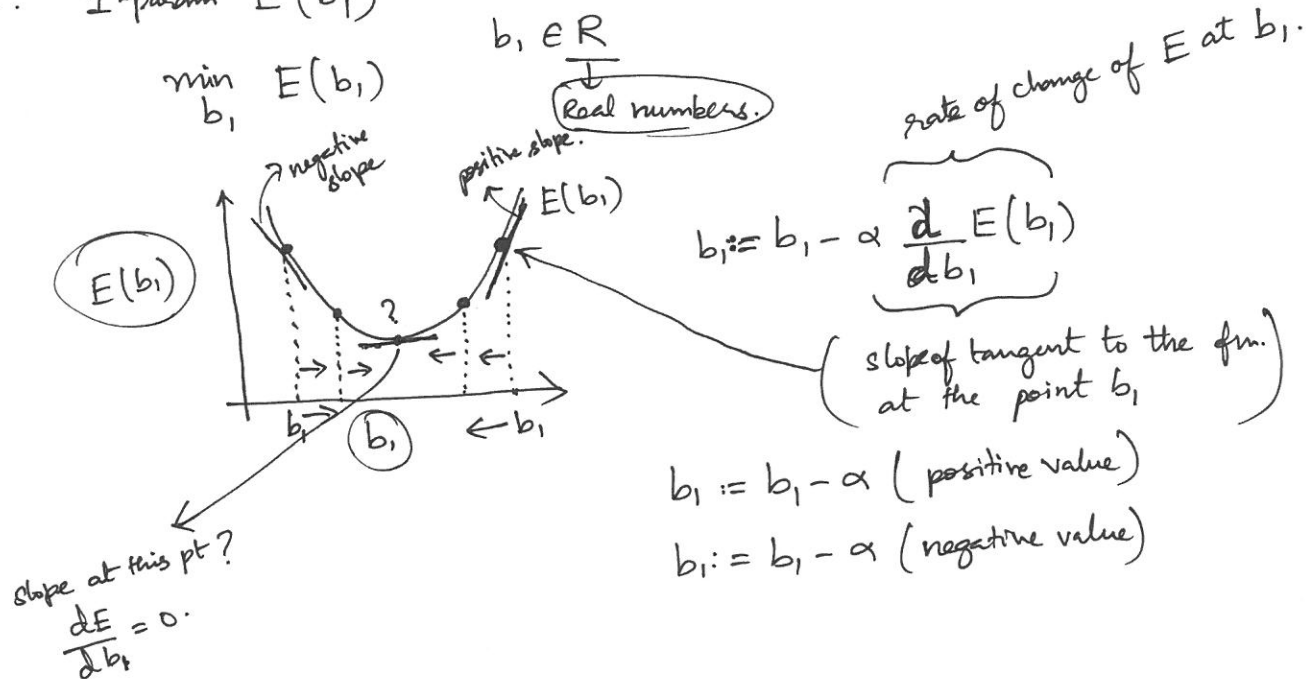 1-param E(b₁)
min E(b₁)
b₁
b₁ ∈ R
Real numbers.
rate of change of E at b₁.
negative
slope
positive slope.
E(b₁)
E(b₁)
?
b₁ := b₁ - α d/db₁ E(b₁)
(slope of tangent to the fn.
at the point b₁)
b₁
b₁
b₁
b₁ := b₁ - α (positive value)
b₁ := b₁ - α (negative value)
slope at this pt?
dE/db₁ = 0.